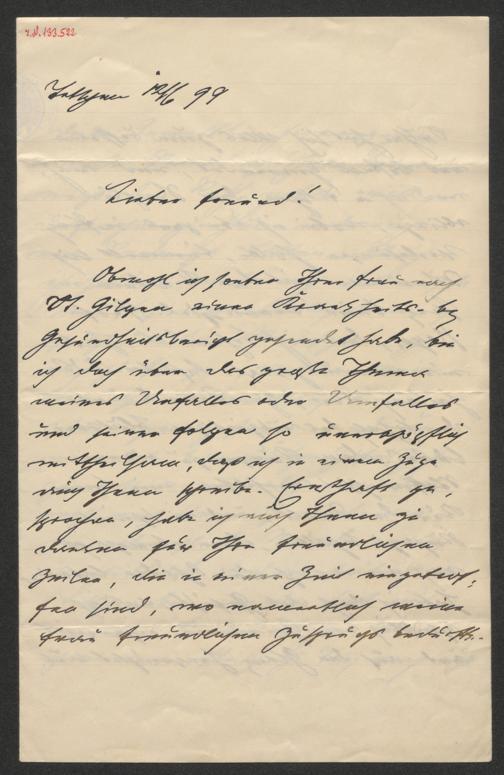 I.N. 133.522
12/6 99
Lieber Freund!
Obwohl ich soeben Ihrer Frau nach
St. Gilgen einen Krankheits- bez
Gesundheitsbericht gesendet habe, bin
ich doch über das große Thema
meines Unfalles oder
und seiner Folgen so unerschöpflich
mittheilsam, daß ich in einem Zuge
auch Ihnen schreibe. Ernsthaft ge-
sprochen, habe ich auch Ihnen zu
danken für Ihre freundlichen
Zeilen, die in einer Zeit eingetrof-
fen sind, wo namentlich meine
Frau freundlichen Zuspruchs bedurfte.